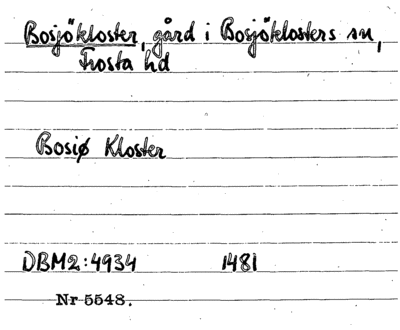 Bosjökloster, gård i Bosjöklosters sn,
Frosta hd
Bosiø Kloster
DBM2:4934 1481
Nr 5548.